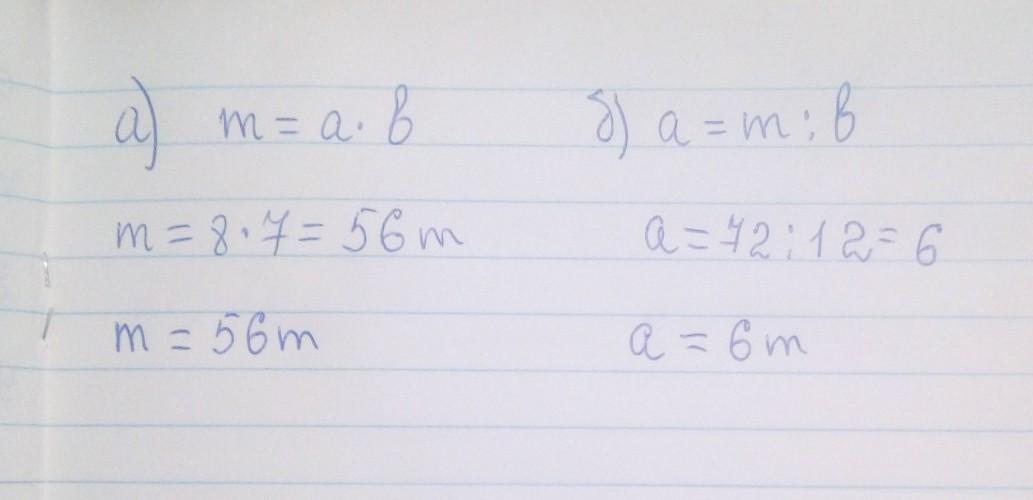 а) m = a · b
m = 8 · 7 = 56 m
m = 56 m
б) a = m : b
a = 72 : 12 = 6
a = 6 m